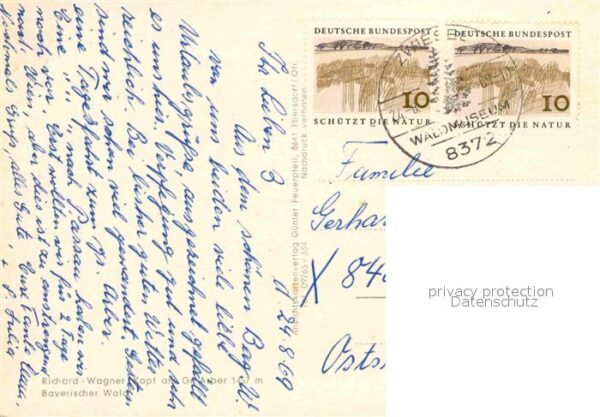 DEUTSCHE BUNDESPOST
10
SCHÜTZT DIE NATUR
DEUTSCHE BUNDESPOST
10
SCHÜTZT DIE NATUR
ZWIESEL
WALDMUSEUM
8372
24.8.69
Ihr lieben 3
Aus dem schönen Bay. W.
wir beiden viel liebe
Urlaubsgrüße ausgezeichnet gefällt
es uns hier. Verpflegung gut und sehr
reichlich. Bei bisher guten Wetter
sind wir schon viel gewandert. Gestern
eine Tagesfahrt zum gr. Arber.
Eine " " nach Passau haben wir
noch vor. Erst wollten wir für 2 Tage
nach Wien, aber dies ist zu anstrengend
Nochmals Grüße, alles Gute, Eure Tante
Familie
Gerha
X 84
Osts
Ansichtskartenverlag Günter Feuerpfeil, 8641 Ebersdorf/Ofr.
Nachdruck verboten
09765/334
Richard-Wagner-Kopf am Gr. Arber 1457 m
Bayerischer Wald
privacy protection
Datenschutz